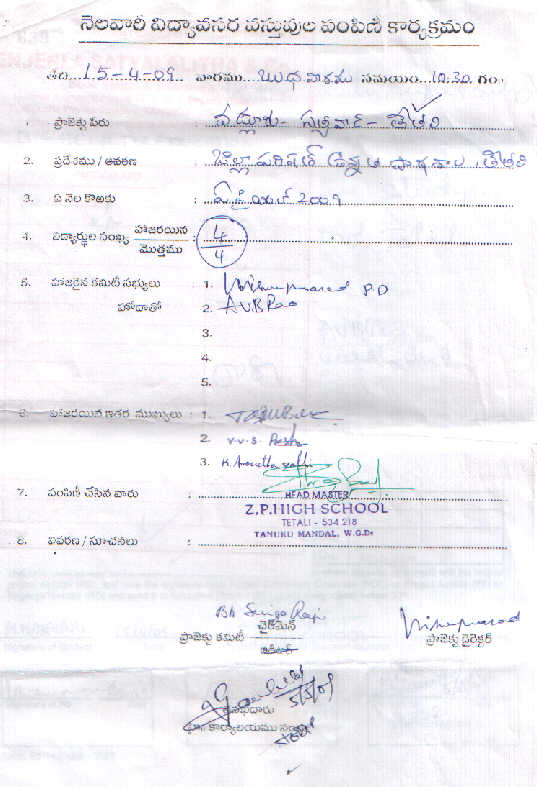 నెలవారీ విద్యావసర వస్తువుల పంపిణీ కార్యక్రమం
తేది 15-4-09 వారము బుధవారము సమయం 10.30 గం॥
1. ప్రాజెక్టు పేరు : పద్మాక్షి - - తేతలి
2. ప్రదేశము / ఆవరణ : జిల్లా పరిషత్ ఉన్నత పాఠశాల, తేతలి
3. ఏ నెల కొఱకు : ఏప్రియల్ 2009
4. విద్యార్థుల సంఖ్య హాజరయిన / మొత్తము : 4/4
5. హాజరైన కమిటీ సభ్యులు హోదాతో : 1. Vishnuprasad P.D
2. A.V.B Rao
3.
4.
5.
6. హాజరయిన ఇతర ముఖ్యులు : 1.
2. V.V.S.
3. K.
7. పంపిణీ చేసిన వారు :
HEAD MASTER
Z.P.HIGH SCHOOL
TETALI - 534 218
TANUKU MANDAL, W.G.Dt
8. వివరణ / సూచనలు :
చైర్‌మెన్
ప్రాజెక్టు కమిటీ
Vishnuprasad
ప్రాజెక్టు డైరెక్టర్
5/5/09